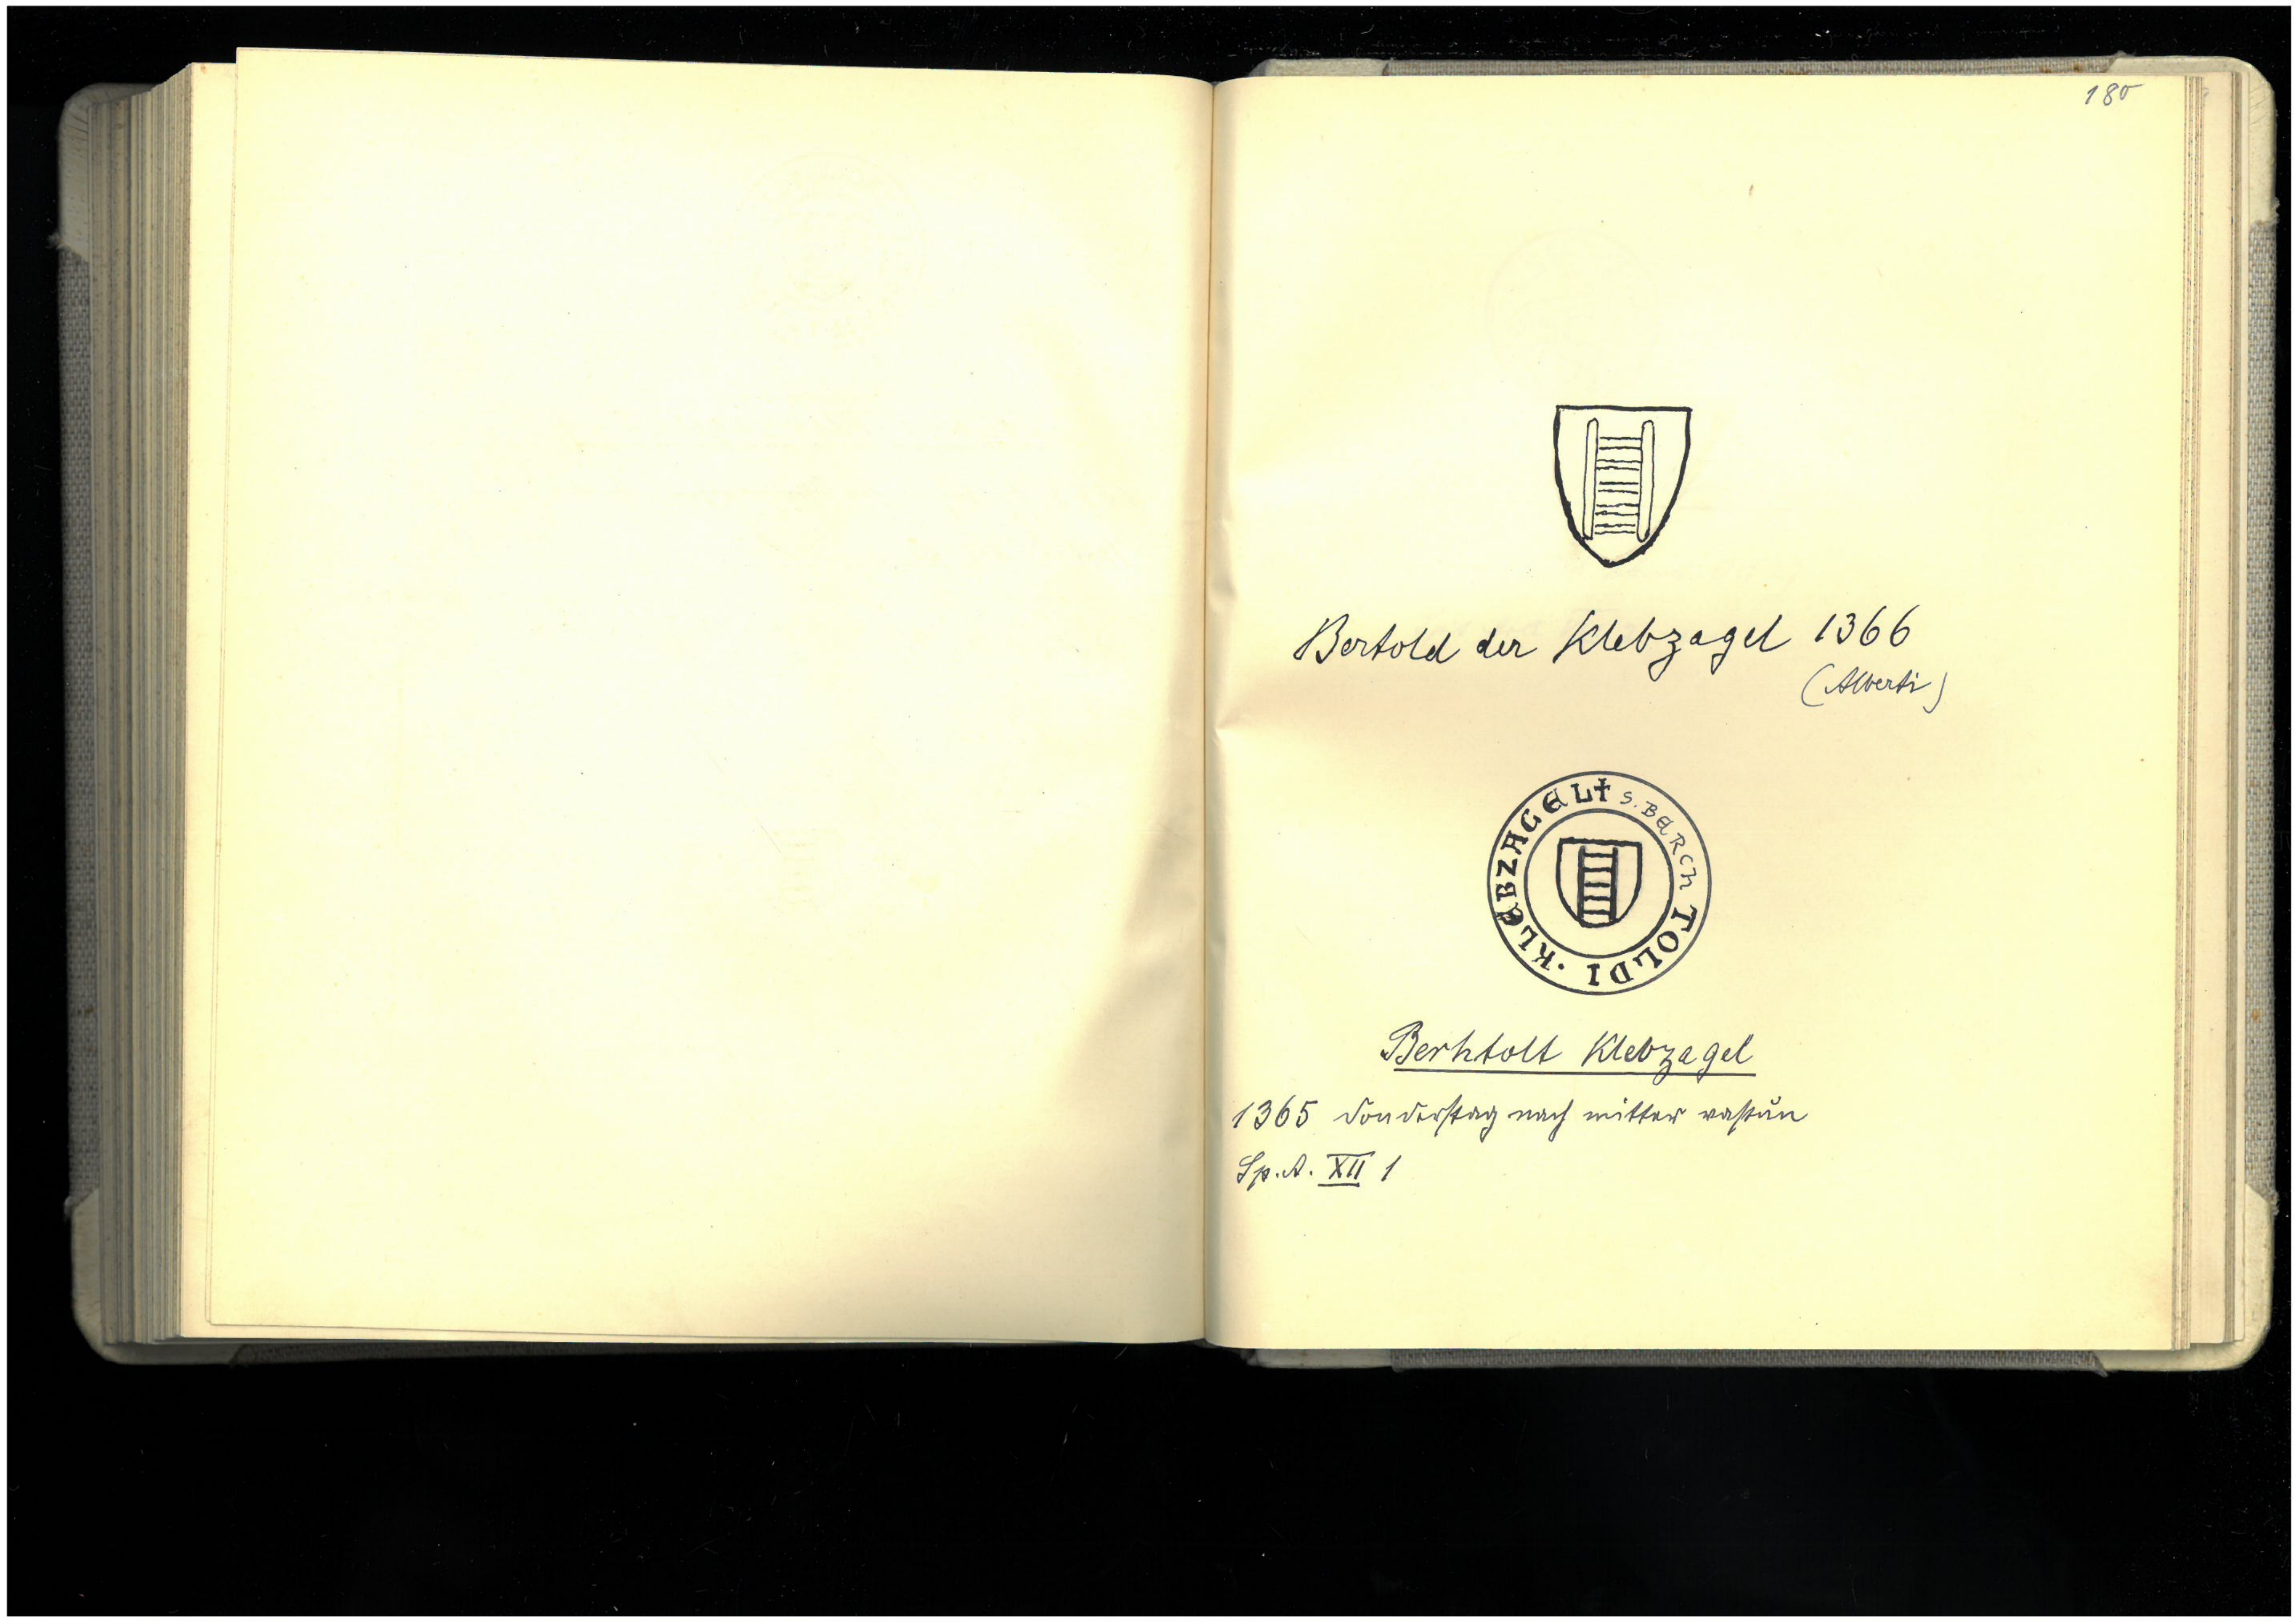 180
Bertold der Klebzagel 1366
(Alberti)
✝ S. BERCH TOLDI · KLEBZAGEL
Berhtolt Klebzagel
1365 Donderstag nach mitter vastun
Sp. A. XII 1